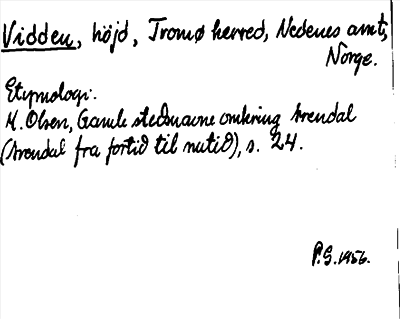 Vidden, höjd, Tromø herred, Nedenes amt,
Norge.
Etymologi:
M. Olsen, Gamle stedsnavne omkring Arendal
(Arendal fra fortid til nutid), s. 24.
P.G. 1956.